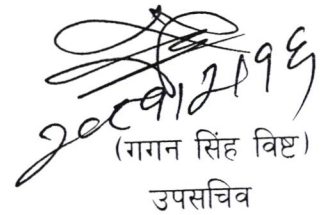 (गगन सिंह विष्ट)
उपसचिव